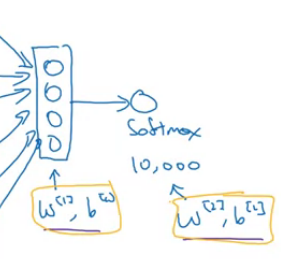 Softmax
10,000
W^[1], b^[1]
W^[2], b^[2]